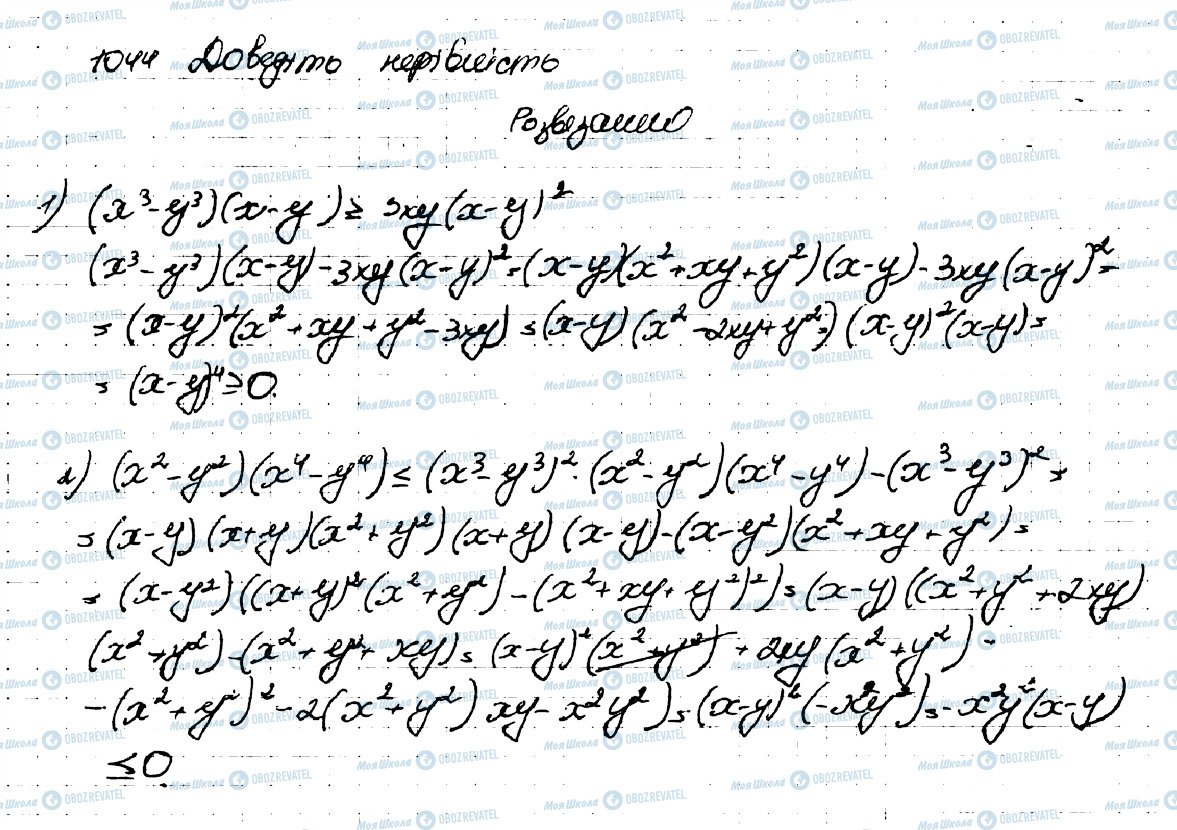 1044 Доведіть нерівність
Розвезанно
1) (x³-y³)(x-y)≥ 3xy(x-y)²
(x³-y³)(x-y)-3xy(x-y)²=(x-y)(x²+xy+y²)(x-y)-3xy(x-y)²=
=(x-y)²(x²+xy+y²-3xy)=(x-y)(x²-2xy+y²=)(x-y)²(x-y)=
=(x-y)⁴≥0.
2) (x²-y²)(x⁴-y⁴)≤(x³-y³)².(x²-y²)(x⁴-y⁴)-(x³-y³)²=
=(x-y)(x+y)(x²+y²)(x+y)(x-y)-(x-y²)(x²+xy+y²)=
=(x-y²)((x+y)²(x²+y²)-(x²+xy+y²)²)=(x-y)((x²+y²+2xy)
(x²+y²)-(x²+y²+xy)=(x-y)²(x²+y²)+2xy(x²+y²)-
-(x²+y²)²-2(x²+y²)xy-x²y²)=(x-y)²(-x²y²)=-x²y²(x-y)
≤0.